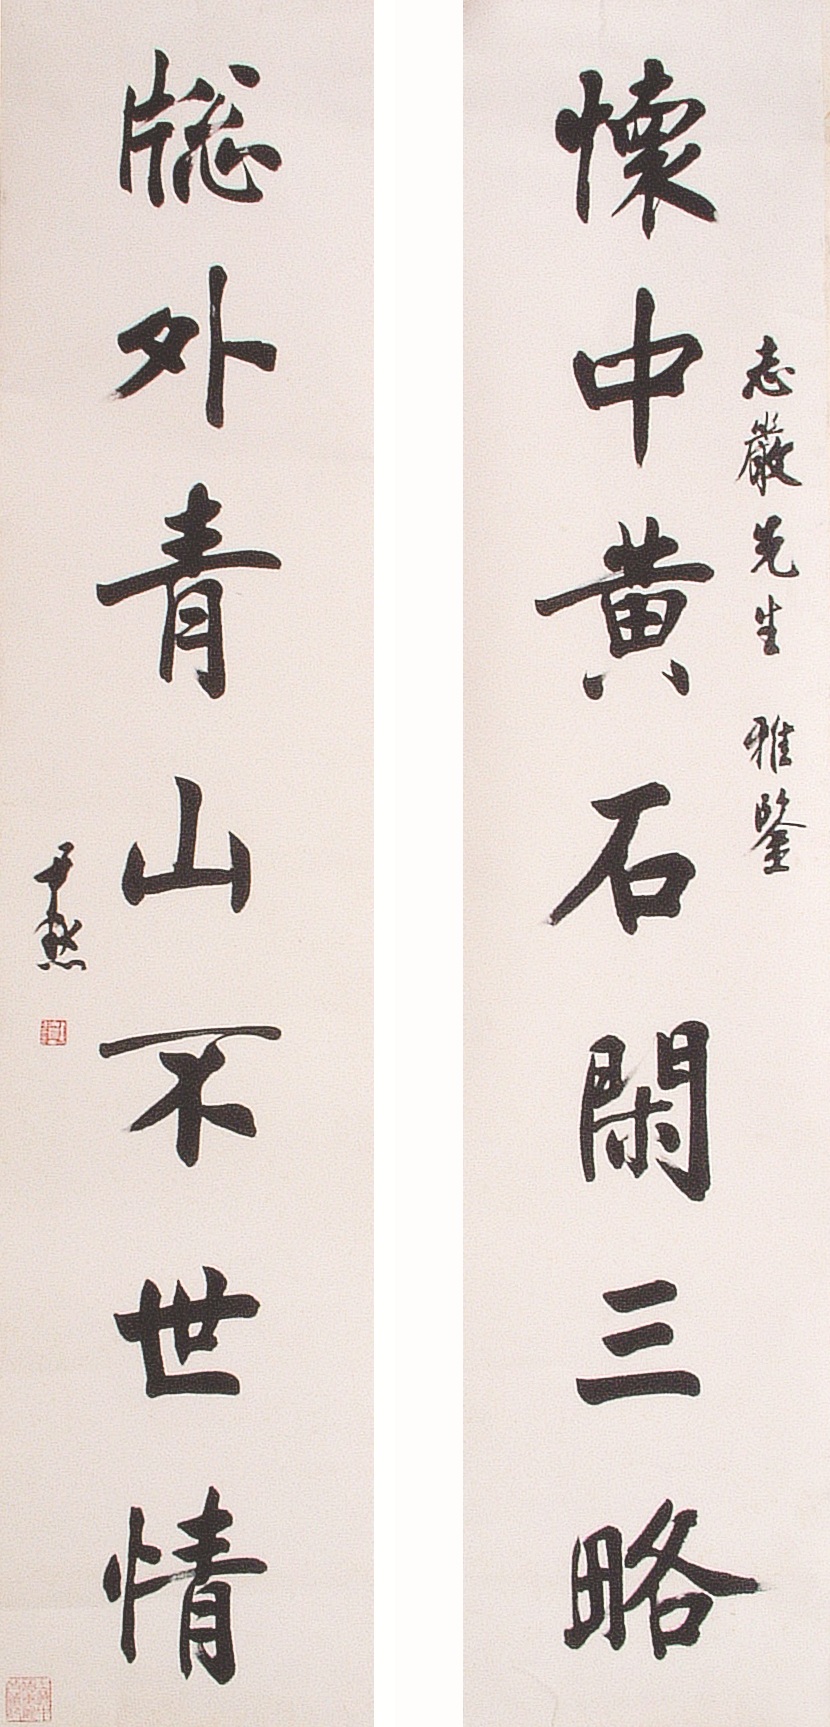 志嚴先生 雅鑒
懷中黃石閑三略
牕外青山不世情
尹默